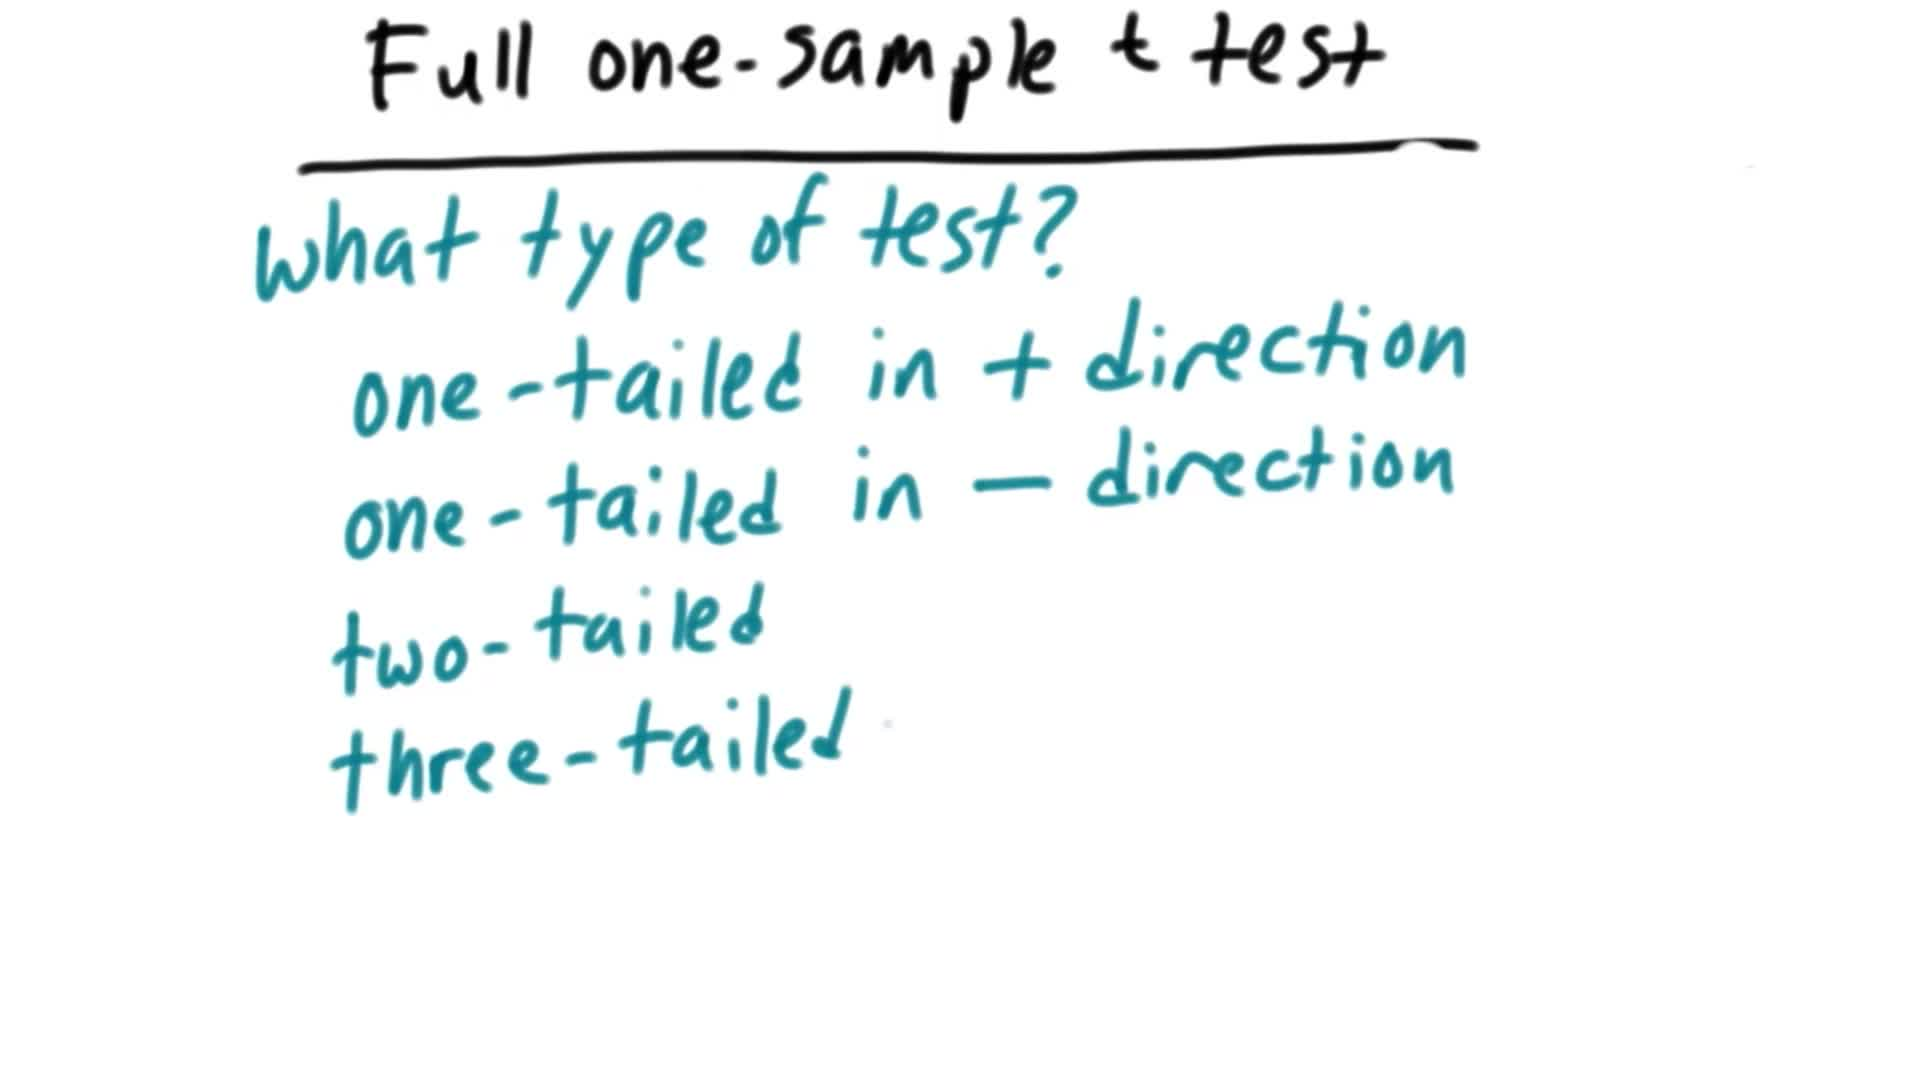 Full one-sample t test
What type of test?
one-tailed in + direction
one-tailed in – direction
two-tailed
three-tailed